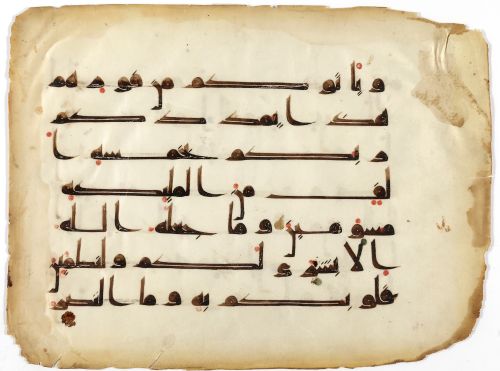 و يا توكم من فورهم
هذا يمددكم
ر بكم بخمسة ا
لف من الملئكة
مسومين و ما جعله الله
الا بشرى لكم و لتطمئن
قلو بكم به و ما النصر